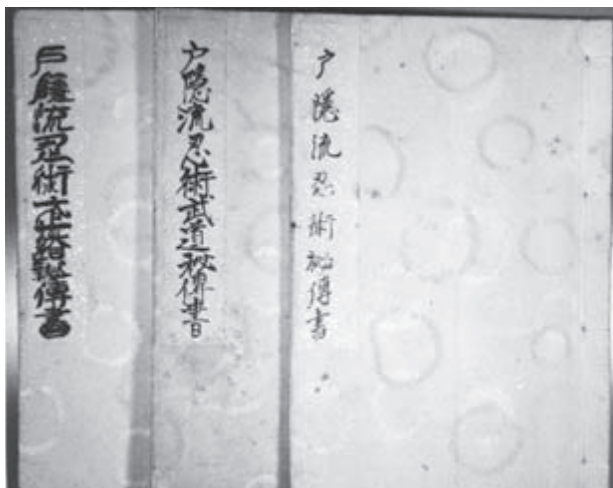 戸隠流忍術秘傳書
戸隠流忍術武道秘傳書
戸隠流忍術秘傳書